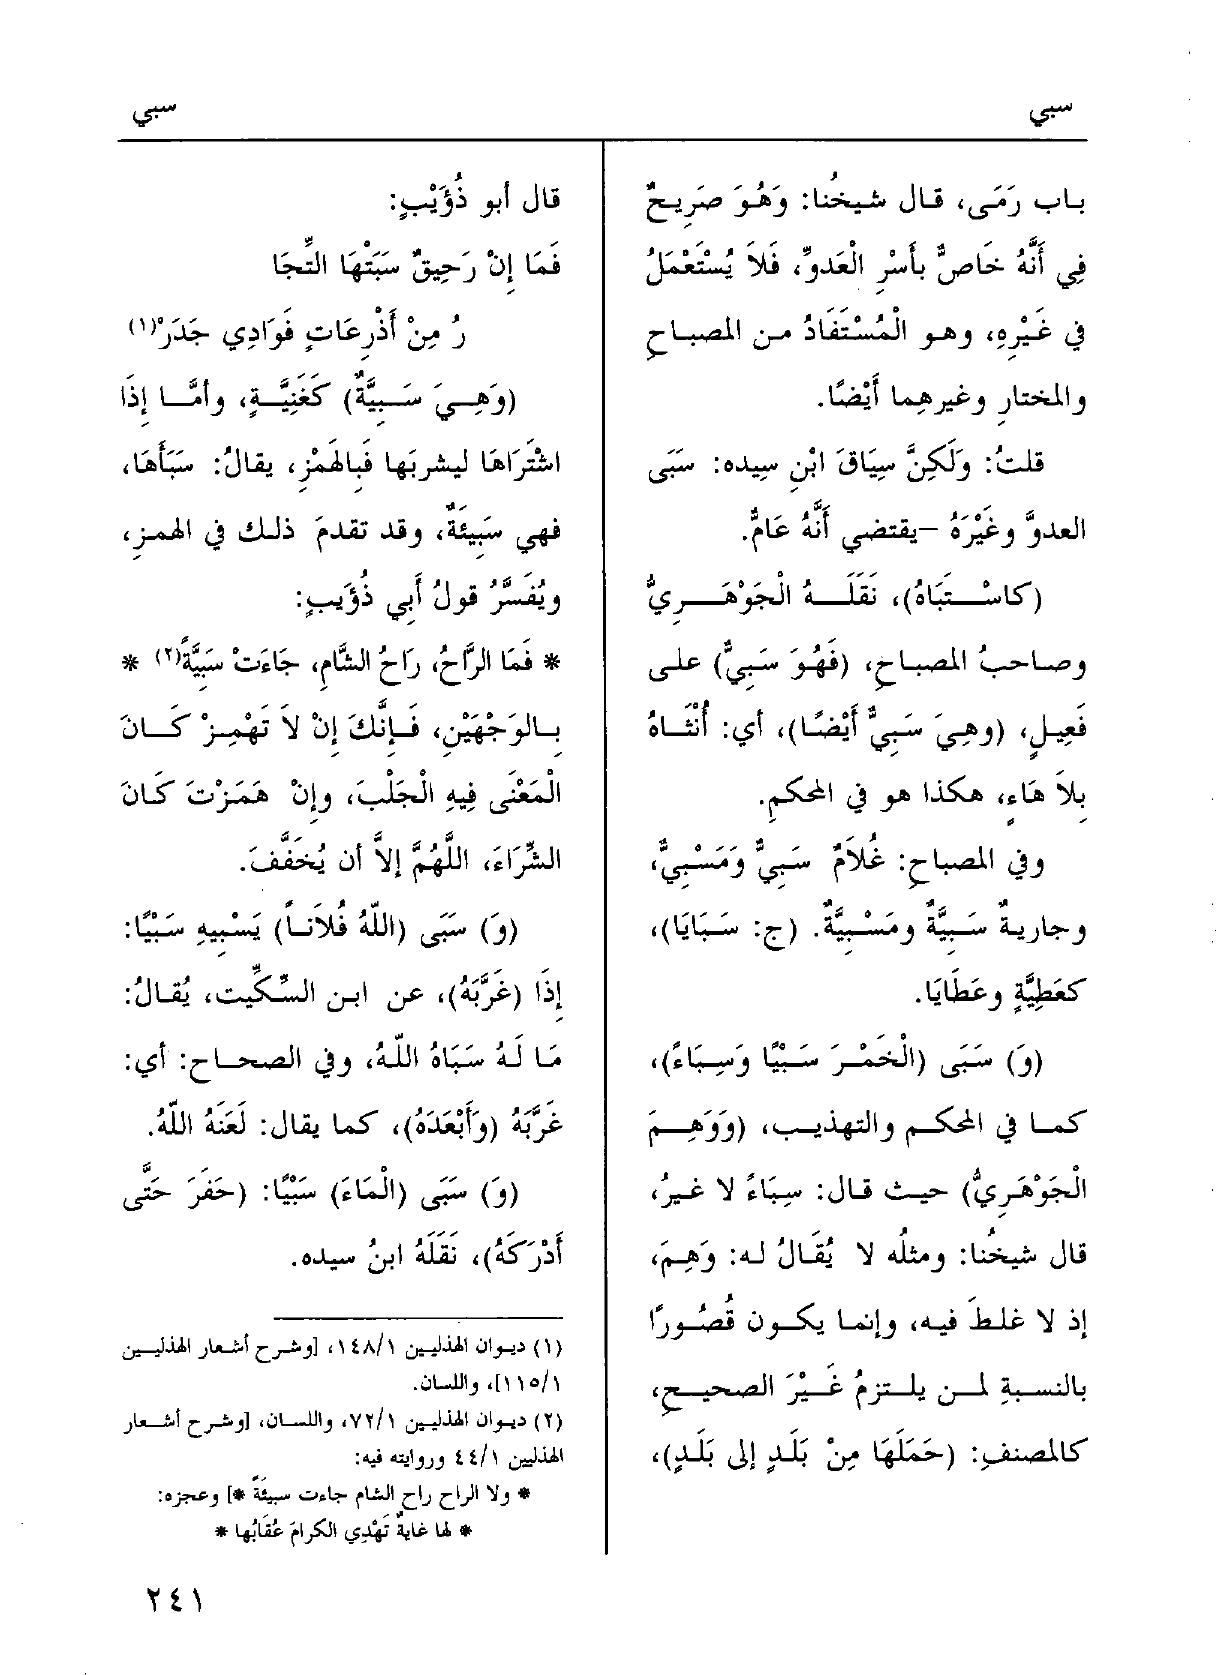 سبي
سبي
باب رَمَى، قال شيخُنا: وَهُوَ صَرِيحٌ
فِي أَنَّهُ خَاصٌّ بأَسْرِ الْعَدوِّ، فَلَا يُسْتَعْمَلُ
في غَيْرِهِ، وهو الْمُسْتَفَادُ من المصباحِ
والمختارِ وغيرهِما أَيْضًا.
قلتُ: وَلَكِنَّ سِيَاقَ ابْنِ سِيده: سَبَى
العدوَّ وغَيْرَهُ –يقتضي أَنَّهُ عَامٌّ.
(كاسْتَبَاهُ)، نَقَلَهُ الْجَوْهَرِيُّ
وصاحبُ المصباحِ، (فَهُوَ سَبِيٌّ) على
فَعِيلٍ، (وهِيَ سَبِيٌّ أَيْضًا)، أي: أُنْثَاهُ
بِلَا هَاءٍ، هكذا هو في المحكمِ.
وفي المصباحِ: غُلَامٌ سَبِيٌّ وَمَسْبِيٌّ،
وجاريةٌ سَبِيَّةٌ ومَسْبِيَّةٌ. (ج: سَبَايَا)،
كعَطِيَّةٍ وعَطَايَا.
(وَ) سَبَى (الْخَمْرَ سَبْيًا وَسِبَاءً)،
كما في المحكم والتهذيب، (وَوَهِمَ
الْجَوْهَرِيُّ) حيث قال: سِبَاءً لا غيرُ،
قال شيخُنا: ومثلُه لا يُقَالُ له: وَهِمَ،
إذ لا غلطَ فيه، وإنما يكون قُصُورًا
بالنسبةِ لمن يلتزمُ غَيْرَ الصحيح،
كالمصنفِ: (حَمَلَهَا مِنْ بَلَدٍ إلى بَلَدٍ)،
قال أبو ذُؤَيْبٍ:
فَمَا إِنْ رَحِيقٌ سَبَتْهَا التِّجَا
رُ مِنْ أَذْرِعَاتٍ فَوَادِي جَدَرْ(١)
(وَهِيَ سَبِيَّةٌ) كَغَنِيَّةٍ، وأمَّا إذَا
اشْتَرَاهَا ليشربَها فَبِالهَمْزِ، يقالُ: سَبَأَهَا،
فهي سَبِيئَةٌ، وقد تقدمَ ذلك في الهمز،
ويُفَسَّرُ قولُ أَبِي ذُؤَيبٍ:
* فَمَا الرَّاحُ، رَاحُ الشَّامِ، جَاءَتْ سَبِيَّةً(٢) *
بالوَجْهَيْنِ، فَإِنَّكَ إنْ لَا تَهْمِزْ كَانَ
الْمَعْنَى فِيهِ الْجَلْبَ، وإنْ هَمَزْتَ كَانَ
الشِّرَاءَ، اللَّهُمَّ إلاَّ أن يُخَفَّفَ.
(وَ) سَبَى (اللّهُ فُلَاناً) يَسْبِيهِ سَبْيًا:
إِذَا (غَرَّبَهُ)، عن ابن السِّكِّيت، يُقَالُ:
مَا لَهُ سَبَاهُ اللّهُ، وفي الصحاح: أي:
غَرَّبَهُ (وَأَبْعَدَهُ)، كما يقال: لَعَنَهُ اللّهُ.
(وَ) سَبَى (الْمَاءَ) سَبْيًا: (حَفَرَ حَتَّى
أَدْرَكَهُ)، نَقَلَهُ ابنُ سيده.
(١) ديوان الهذليين ١٤٨/١، [وشرح أشعار الهذليين
١١٥/١]، واللسان.
(٢) ديوان الهذليين ٧٢/١، واللسان، [وشرح أشعار
الهذليين ٤٤/١ وروايته فيه:
* ولا الراح راح الشام جاءت سبيئةً *] وعجزه:
* لها غايةٌ تَهْدِي الكرامَ عُقَابُها *
٢٤١